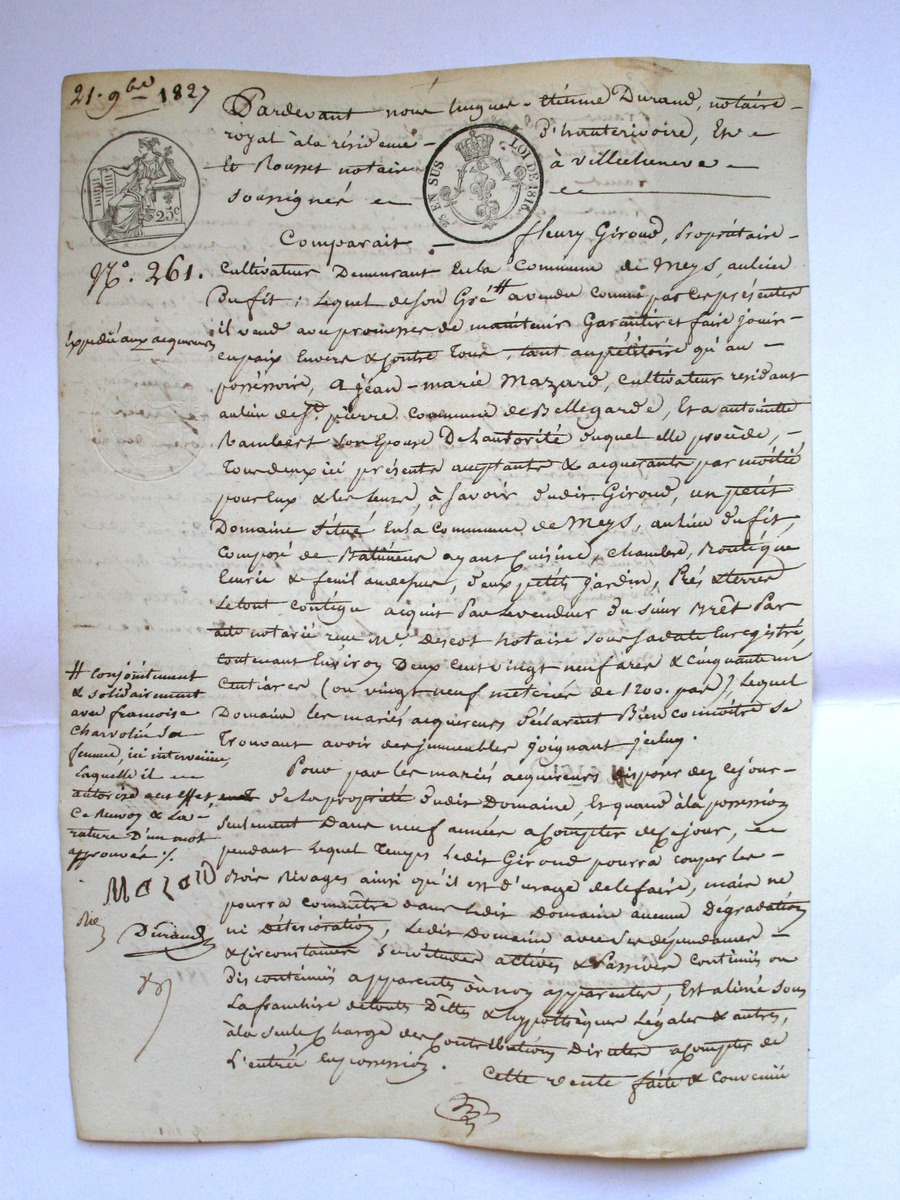 21. 9bre 1827
Pardevant nous hugues-etienne Durand, notaire
royal à la résidence d'hauterivoire, Et
Et Rousset notaire à villecheneve
soussignés
25c
25 EN SUS
LOI DE 1816.
Comparait fleury Giroud, Propriétaire
N°. 261.
Cultivateur Demeurant En la Commune de Meys, au lieu
Du fit ; lequel de son Gré # a vendu comme par ces présentes
il vend avec promesse de maintenir Garantir et faire jouir
Expédié aux acquereurs
en paix Envers & contre Tous, tant au pétitoire qu'au
possessoire, à jean-marie Mazard, cultivateur residant
au lieu de St. pierre Commune de Bellegarde, Et a antoinette
Rambert son Epouse De l'autorité duquel elle procède,
Tous deux ici présents acceptants & acquerants par moitié
pour Eux & les leurs, à savoir dudit Giroud, un petit
Domaine situé En la Commune de Meys, au lieu du fit,
composé de Batiments ayant Cuisine, chambre, Boutique
Ecurie & fenil au dessus, deux petits jardin, Prés & terres
Le tout contigu acquit Par le vendeur du sieur Brêt Par
acte notarié reçu Me. Descot notaire sous sa date Enregistré,
contenant Environ Deux cent vingt neuf ares & cinquante un
centiares (ou vingt neuf meterées de 1200. pas), Lequel
Domaine les mariés acquereurs Déclarent Bien connoitre se
Trouvant avoir des jmmeubles joignant jcelui.
# conjointement
& solidairement
avec françoise
Charvolin sa
femme, ici intervenüe,
laquelle il
autorise à cet effet,
Ce Renvoy & La
rature D'un mot
approuvés ./.
Mazard
Durand
Pour par les mariés acquereurs disposer dez ce jour
de la propriété dudit Domaine, Et quand à la possession
seulement Dans neuf années a Compter de ce jour,
pendant lequel Temps Ledit Giroud pourra couper les
Bois Rivages ainsi qu'il est d'usage de le faire, mais ne
pourra commettre dans Ledit Domaine aucune Dégradation
ni Détérioration, Ledit Domaine avec ses dépendances
& Circonstances Servitudes actives & Passives continües ou
discontinües apparentes ou non apparentes, Est aliéné sous
La franchise de touts Dêttes & hypothèques Légales & autres,
à la seule Charge des Contributions Directes a compter de
L'entrée en possession. Cette vente faite & convenüe